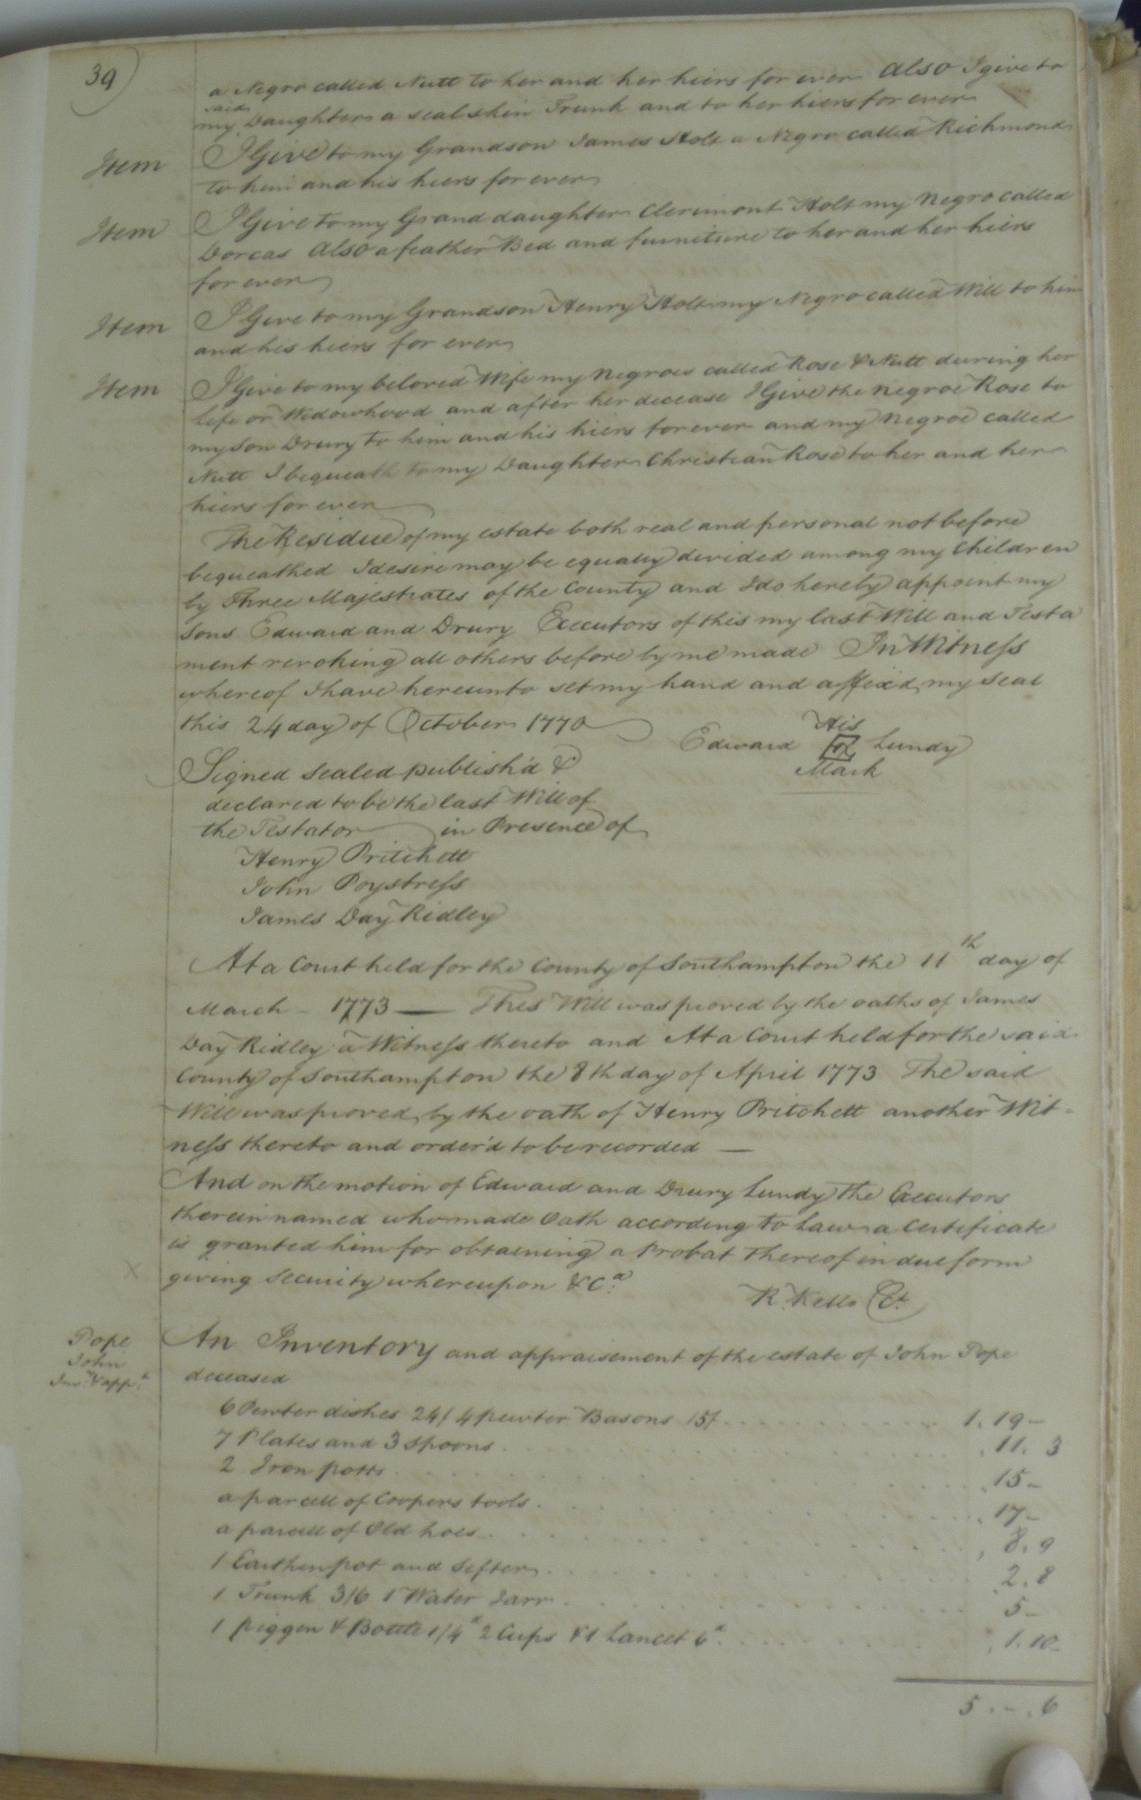 39
a Negro called Nutt to her and her hiers for ever Also I give to
said
my Daughter a sealskin Trunk and to her hiers for ever
Item I Give to my Grandson James Holt a Negro called Richmond
to him and his hiers for ever
Item I Give to my Grand daughter Clerimont Holt my Negro called
Dorcas Also a feather Bed and furniture to her and her hiers
for ever
Item I Give to my Grandson Henry Holt my Negro called Will to him
and his hiers for ever
Item I Give to my beloved Wife my Negroes called Rose & Nutt during her
Life or Widowhood and after her decease I Give the Negroe Rose to
my Son Drury to him and his hiers forever and my Negroe called
Nutt I bequeath to my Daughter Christian Rose to her and her
hiers for ever
The Residue of my estate both real and personal not before
bequeathed I desire may be equally devided among my Children
by Three Majestrates of the County and I do hereby appoint my
Sons Edward and Drury Executors of this my last Will and Testa
ment revoking all others before by me made In Witness
whereof I have hereunto set my hand and affix'd my seal
this 24 day of October 1770
His
Edward Lundy
Mark
Signed Sealed publish'd &
declared to be the last Will of
the Testator in Presence of
Henry Pritchett
John Poystress
James Day Ridley
At a Court held for the County of Southampton the 11th day of
March - 1773 — This Will was proved by the oaths of James
Day Ridley a Witness thereto and At a Court held for the said
County of Southampton the 8th day of April 1773 The said
Will was proved by the oath of Henry Pritchett another Wit-
ness thereto and order'd to be recorded —
And on the motion of Edward and Drury Lundy the Executors
therein named who made Oath according to Law a Certificate
is granted him for obtaining a Probat Thereof in due form
giving Security whereupon &Ca.
R. Kello Ct.
Pope
John
Inv. & appt.
An Inventory and appraisement of the estate of John Pope
deceased
6 Pewter dishes 24/ 4 pewter Basons 15/ 1. 19 -
7 Plates and 3 spoons 11. 3
2 Iron potts 15 -
a parcell of Coopers tools 17 -
a parcell of Old hoes 8. 9
1 Earthen pot and Sifter 2. 8
1 Trunk 3/6 1 Water Jarr 5 -
1 piggen & Bottle 1/4d 2 Cups & 1 Lancet 6d. 1. 10
5 . - . 6